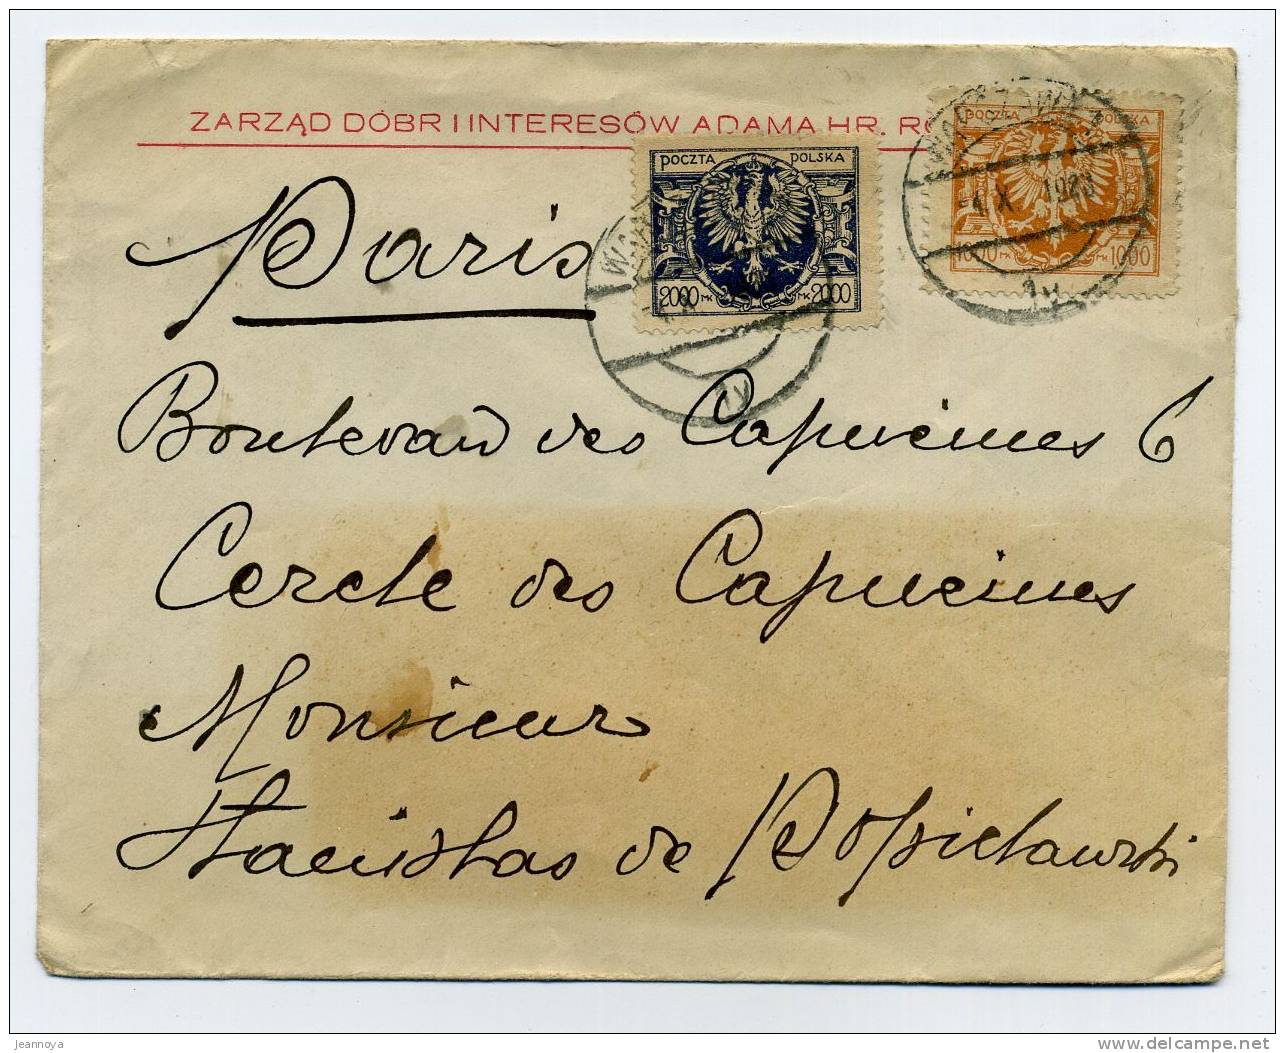 ZARZĄD DÓBR I INTERESÓW ADAMA HR.
POCZTA POLSKA
2000 MK MK 2000
POCZTA POLSKA
1000 MK MK 1000
4 X 1923
1y
1y
Paris
Boulevard des Capucines 6
Cercle des Capucines
Monsieur
Stanislas de
jeannoya
delcampe.net